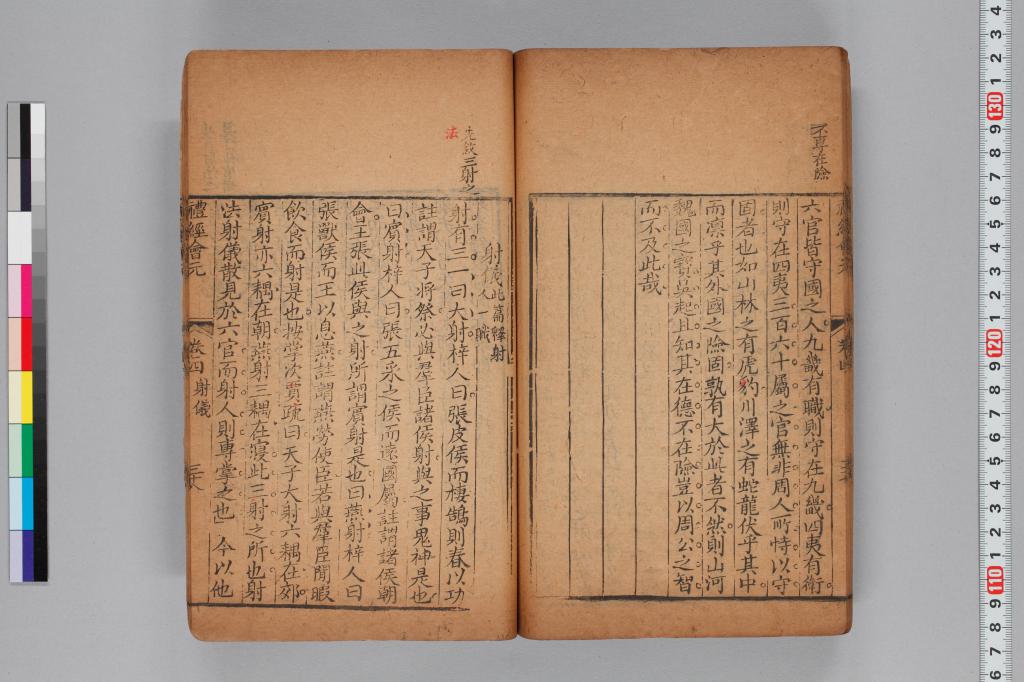 不專在險
六官皆守國之人九畿有職則守在九畿四夷有衛
則守在四夷三百六十屬之官無非周人所恃以守
固者也如山林之有虎豹川澤之有蛇龍伏乎其中
而凛乎其外國之險固孰有大於此者不然則山河
魏國之寶吳起且知其在德不在險豈以周公之智
而不及此哉
先敘三射之
法
射儀此篇釋射人一職
射有三一曰大射梓人曰張皮侯而棲鵠則春以功
註謂天子將祭必與羣臣諸侯射與之事鬼神是也
曰賓射梓人曰張五采之侯而遠國屬註謂諸侯朝
會王張此侯與之射所謂賓射是也曰燕射梓人曰
張獸侯而王以息燕註謂燕勞使臣若與羣臣閒暇
飲食而射是也按掌次賈疏曰天子大射六耦在郊
賓射亦六耦在朝燕射三耦在寢此三射之所也射
法射儀散見於六官而射人則專掌之也今以他
禮經會元
卷四 射儀